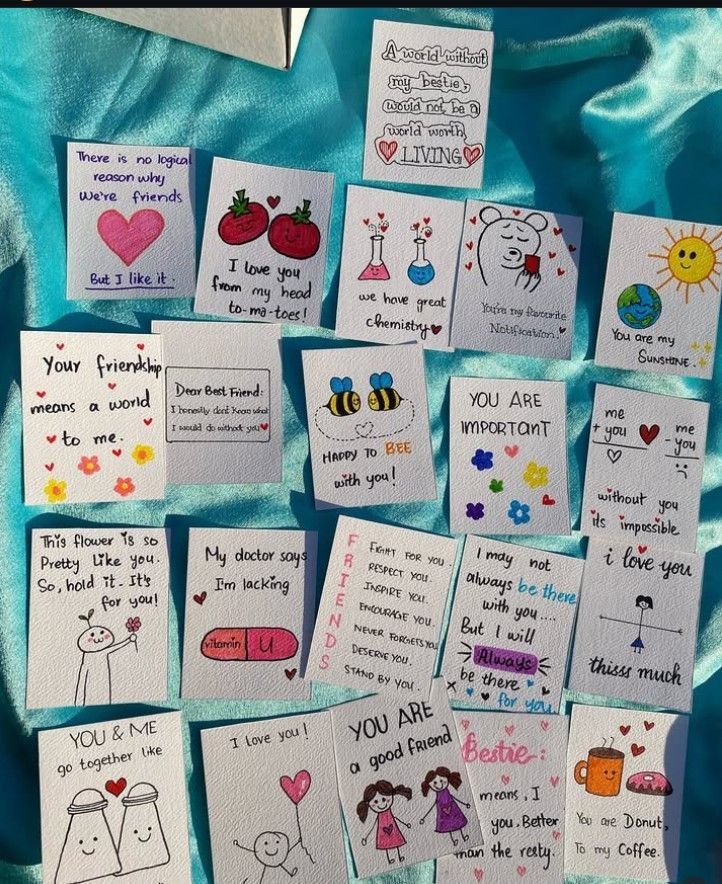 A world without
my bestie,
would not be a
world worth
LIVING
There is no logical
reason why
We're friends
But I like it.
I love you
from my head
to-ma-toes!
we have great
chemistry
You're my favourite
Notification.
You are my
SUNSHINE.
Your friendship
means a world
to me.
Dear Best Friend:
I honestly dont know what
I would do without you
HAPPY TO BEE
with you!
YOU ARE
IMPORTANT
me
+ you
me
- you
without you
its impossible
This flower is so
Pretty Like you.
So, hold it. It's
for you!
My doctor says
I'm lacking
vitamin U
FRIENDS
FIGHT FOR YOU.
RESPECT YOU.
INSPIRE YOU.
ENCOURAGE YOU.
NEVER FORGETS YOU
DESERVE YOU.
STAND BY YOU.
I may not
always be there
with you....
But I will
Always
be there
for you
i love you
thisss much
YOU & ME
go together like
I love you!
YOU ARE
a good friend
Bestie:
means, I
you. Better
than the resty.
You are Donut,
To my Coffee.